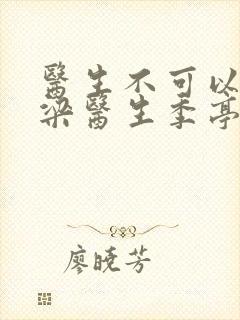 醫生不可以
梁醫生季亭
廖曉芳